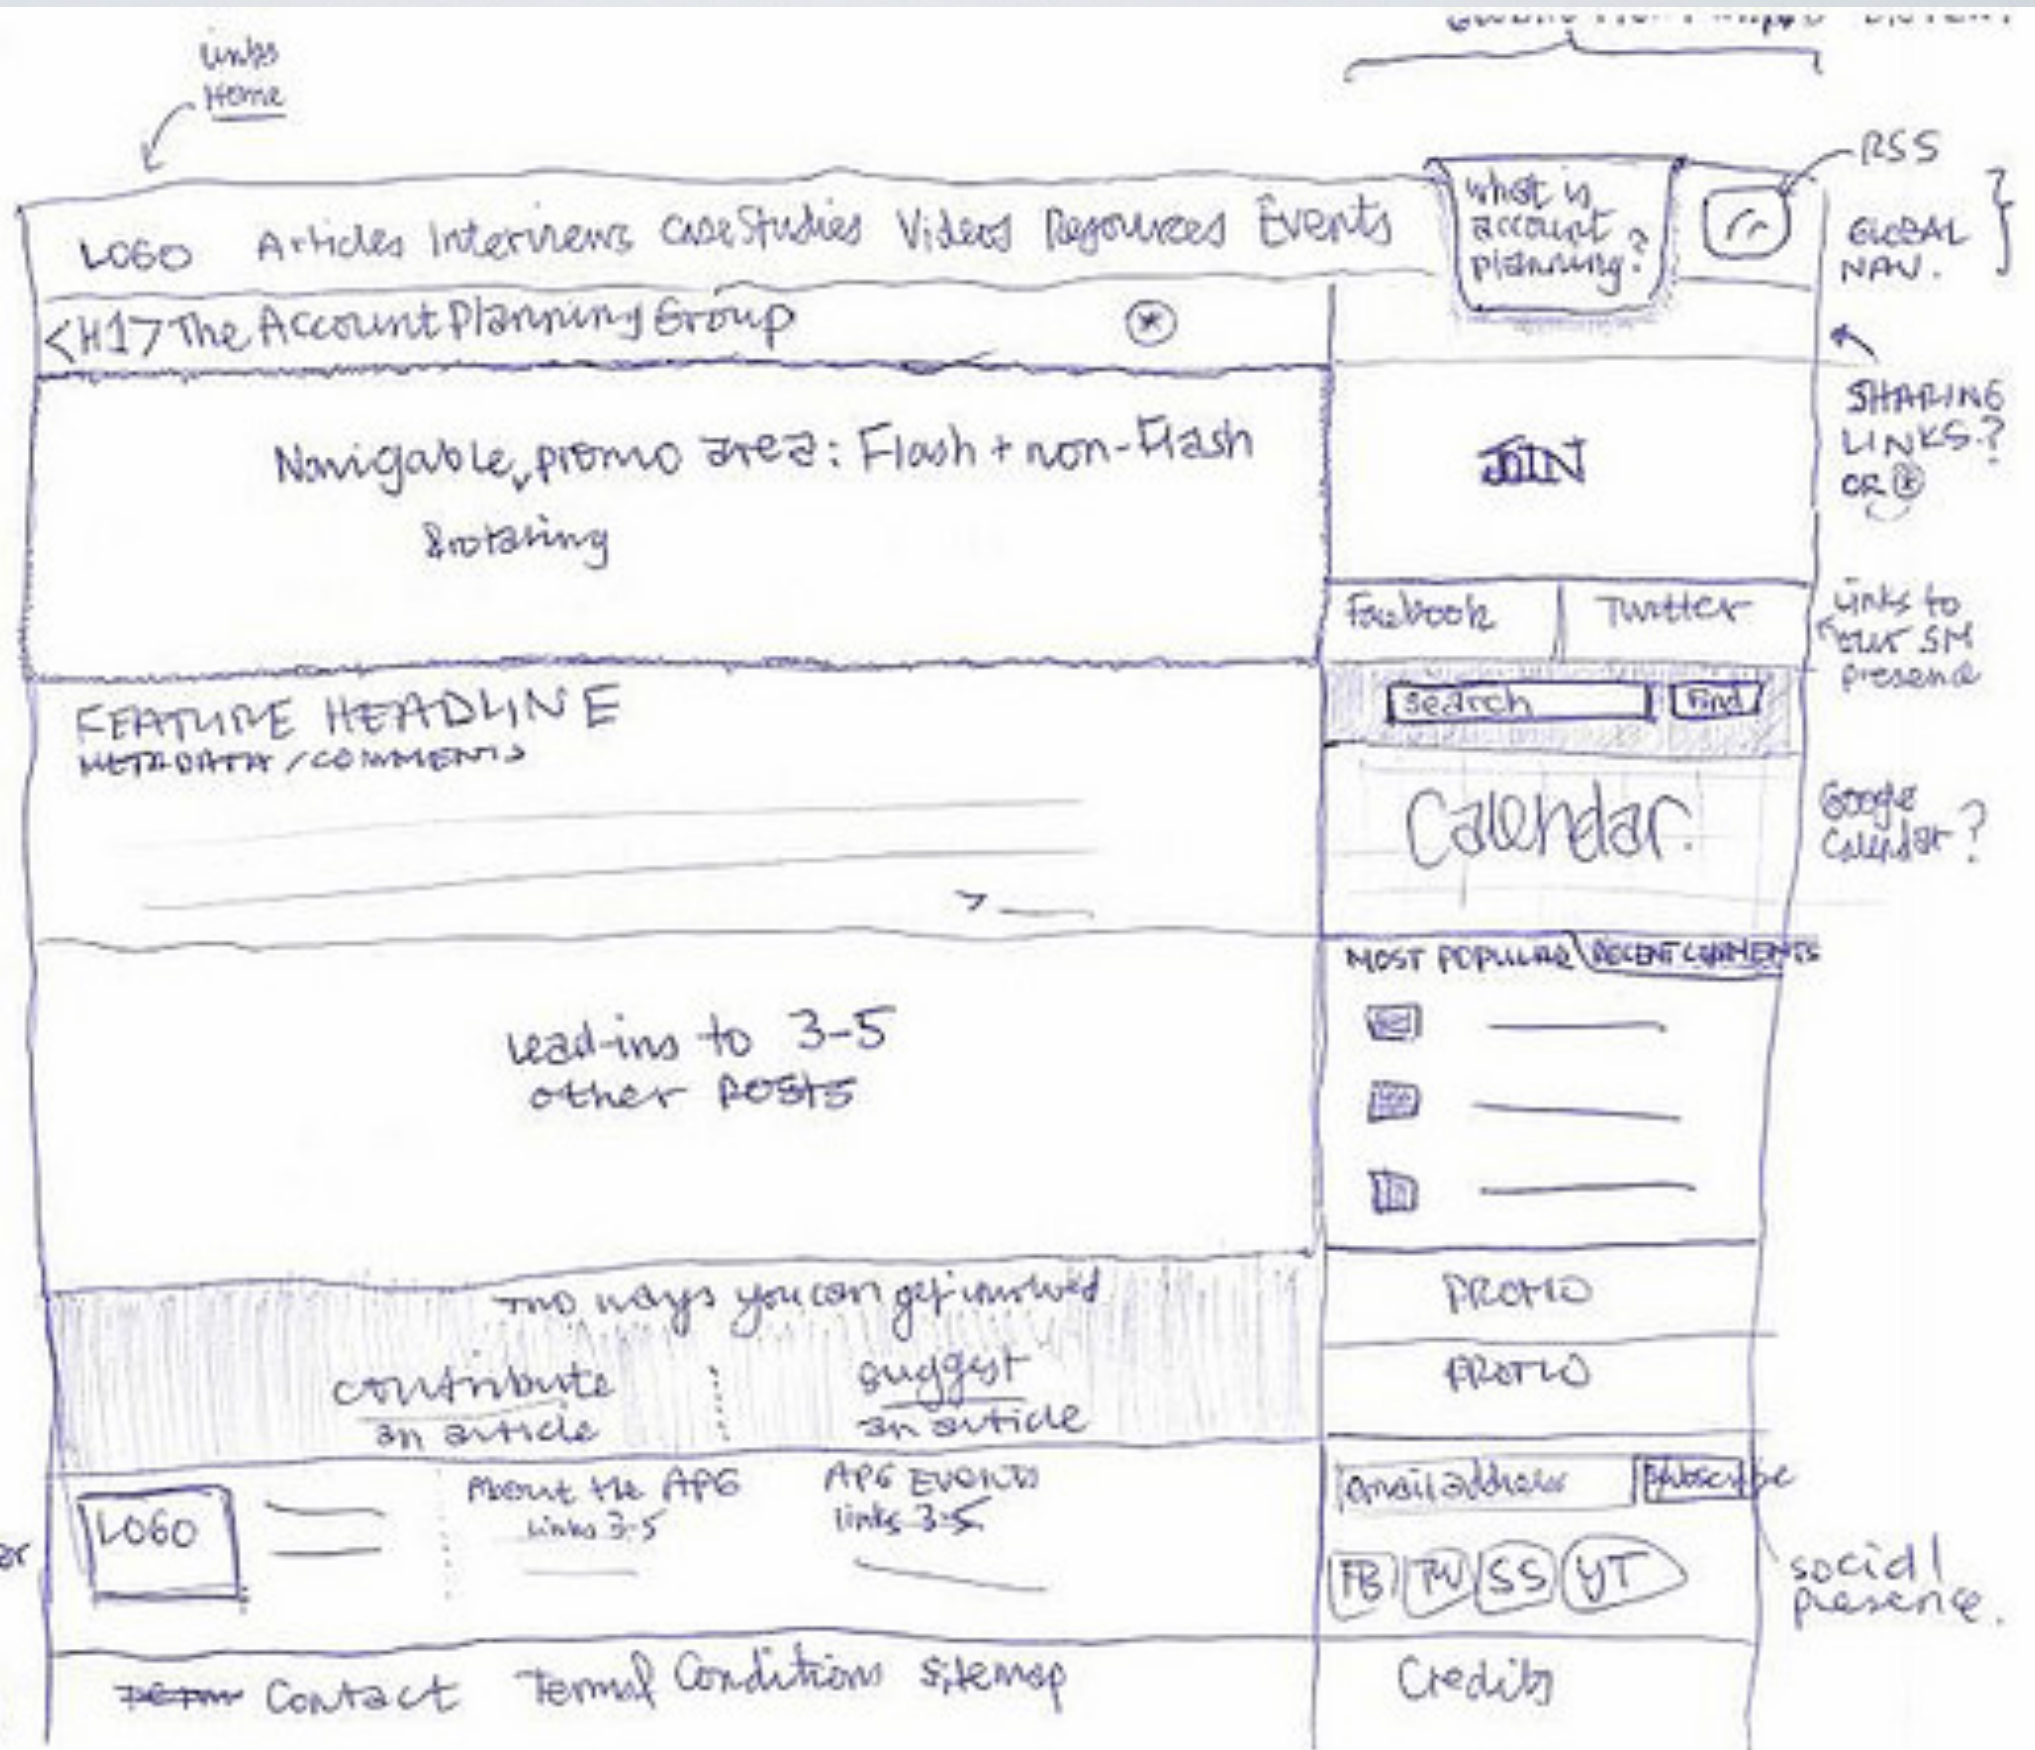 links
Home
RSS
LOGO Articles Interviews Case Studies Videos Resources Events
what is
account
planning?
GLOBAL
NAV.
<H1> The Account Planning Group
SHARING
LINKS?
OR
Navigable, promo area: Flash + non-Flash
& rotating
JOIN
Facebook
Twitter
Links to
our SM
presence
search
Find
FEATURE HEADLINE
METADATA / COMMENTS
>
Calendar
Google
Calendar?
MOST POPULAR
RECENT COMMENTS
Lead-ins to 3-5
other posts
PROMO
PROMO
Two ways you can get involved
contribute
an article
suggest
an article
LOGO
About the APG
links 3-5
APG EVENTS
links 3-5
email address
subscribe
FB TW SS YT
social
presence.
Contact
Conditions Sitemap
Credits